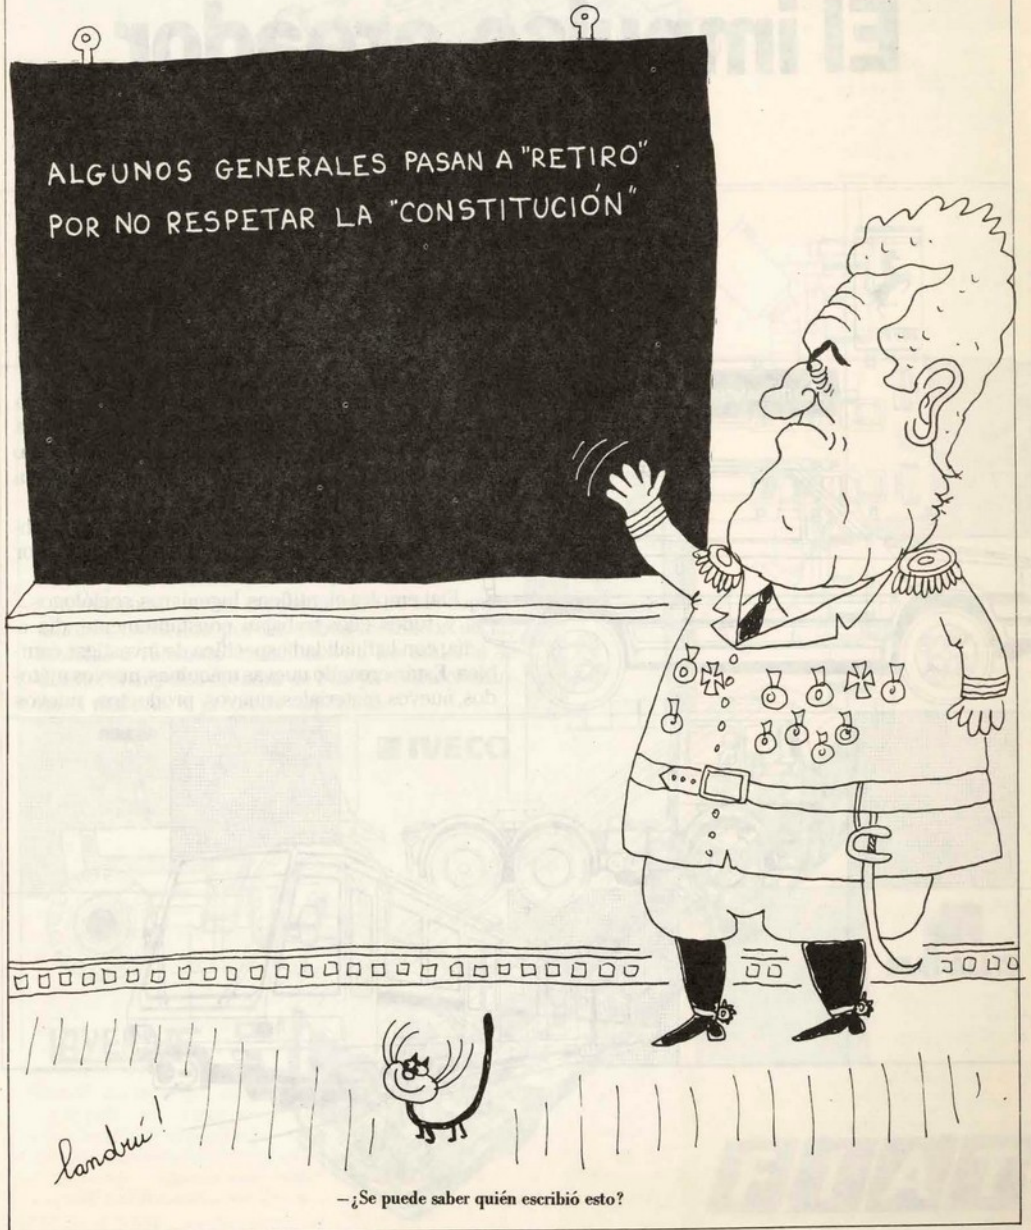 ALGUNOS GENERALES PASAN A "RETIRO"
POR NO RESPETAR LA "CONSTITUCIÓN"
landrú!
—¿Se puede saber quién escribió esto?